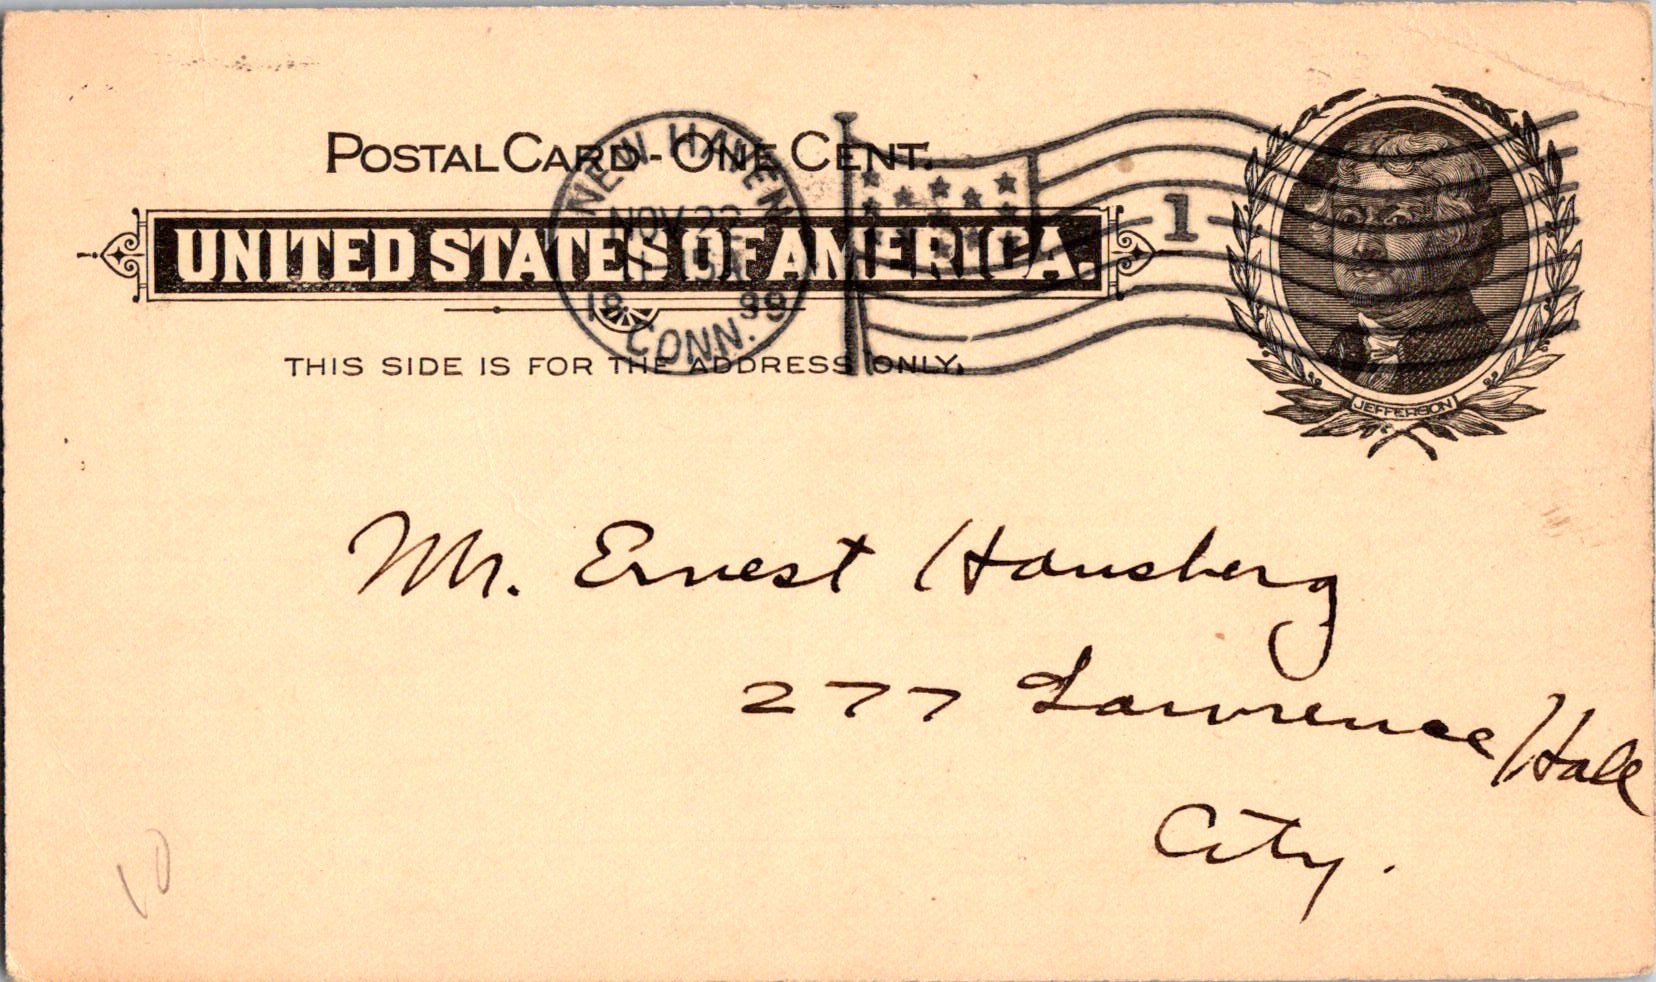 POSTAL CARD - ONE CENT.
UNITED STATES OF AMERICA.
THIS SIDE IS FOR THE ADDRESS ONLY.
NEW HAVEN
NOV 22
18 99
CONN.
1
JEFFERSON
Mr. Ernest Hausberg
277 Lawrence Hall
City.
10